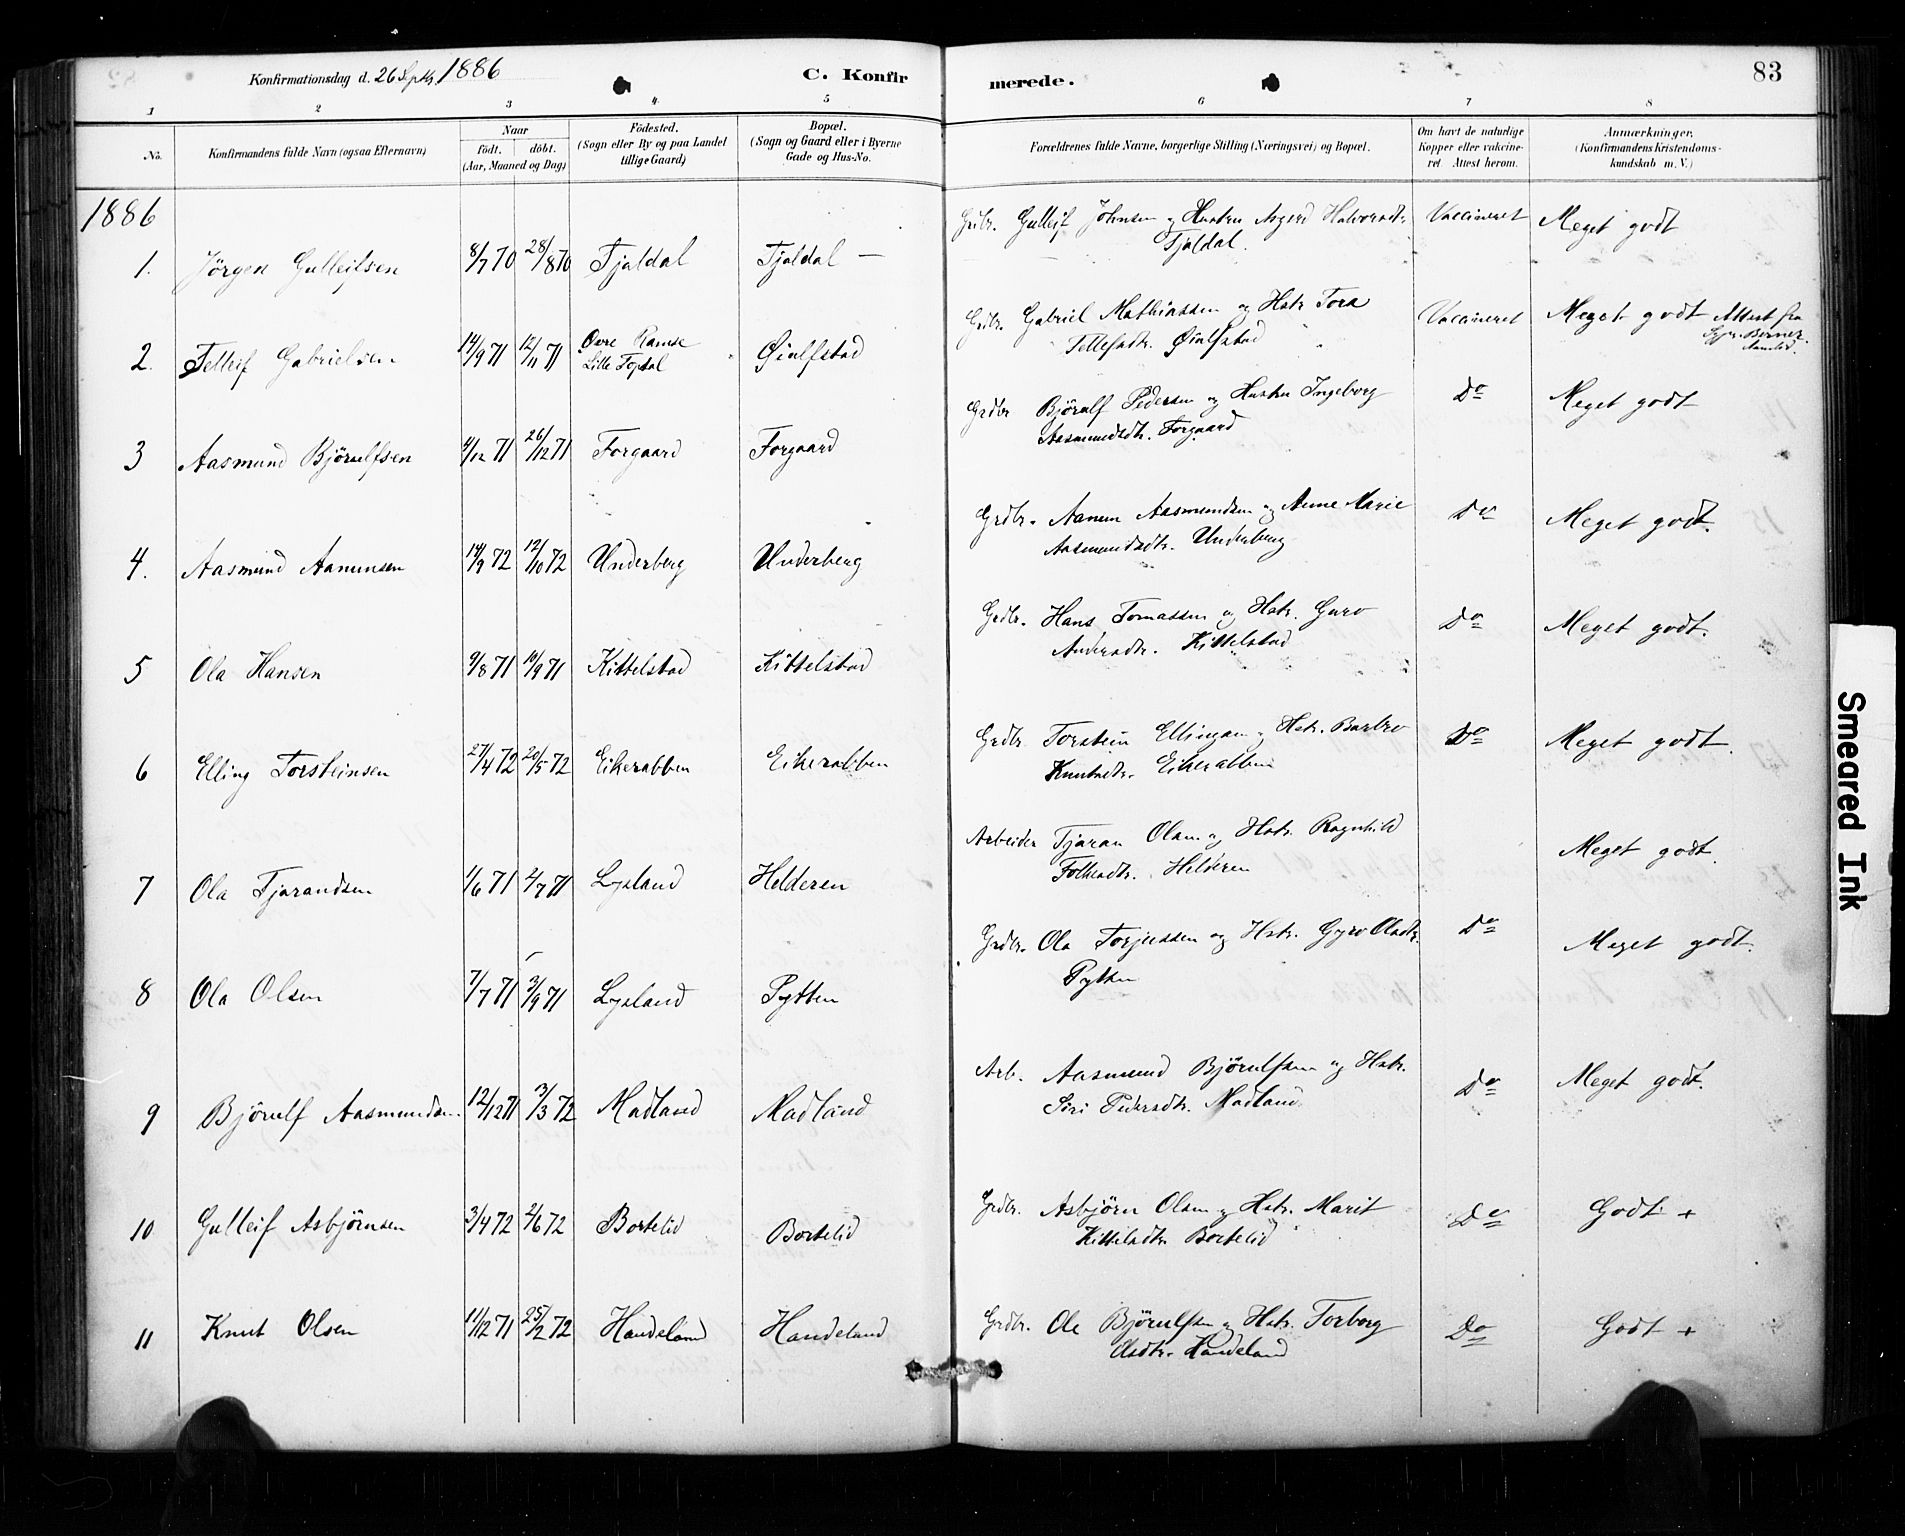 Konfirmationsdag d. 26 Septb. 1886
C. Konfir
merede.
83
1
2
3
4
5
6
7
8
No.
Konfirmandens fulde Navn (ogsaa Efternavn)
Naar
födt. döbt.
(Aar, Maaned og Dag)
Födested.
(Sogn eller By og paa Landet
tillige Gaard)
Bopæl.
(Sogn og Gaard eller i Byerne
Gade og Hus-No.
Forældrenes fulde Navne, borgerlige Stilling (Næringsvei) og Bopæl.
Om havt de naturlige
Kopper eller vakcine-
ret Attest herom.
Anmærkninger.
(Konfirmandens Kristendoms-
kundskab m. V.)
1886
1. Jörgen Gulleifsen 8/7 70 28/8 70 Tjaldal Tjaldal — Grdbr. Gulleif Johnsen og Hustru Asgerd Halvorsdtr. Vaccineret Meget godt
Tjaldal.
2. Tellef Gabrielsen 14/9 71 12/11 71 Övre Ramse Øiulfstad Grdbr. Gabriel Mathiassen og Hstr. Tora Vaccineret Meget godt Attest fra
Lille Topdal
Tellefsdtr. Øiulfstad
3 Aasmund Björulfsen 4/12 71 26/12 71 Forgaard Forgaard Grdbr Björulf Pedersen og Hustru Ingeborg Do Meget godt
Aasmundsdtr. Forgaard
4. Aasmund Aanunsen 14/9 72 12/10 72 Underberg Underberg Grdbr. Aanun Aasmundsen og Anne Marie Do Meget godt.
Aasmundsdtr. Underberg
5 Ola Hansen 9/8 71 10/9 71 Kittelstad Kittelstad Grdbr. Hans Tomassen og Hstr. Guro Do Meget godt.
Andersdtr. Kittelstad
6 Elling Torsteinsen 27/4 72 20/5 72 Eikerabben Eikerabben Grdbr. Torstein Ellingsen og Hstr. Barbro Do Meget godt.
Knutsdtr. Eikerabben
7 Ola Tjarandsen 1/6 71 2/7 71 Lysland Helderen Arbeider Tjaran Olsen og Hstr. Ragnhild Meget godt.
Folkesdtr. Helderen
8 Ola Olsen 7/7 71 3/9 71 Lysland Pytten Grdbr. Ola Torjussen og Hstr. Gyro Olsdtr. Do Meget godt.
Pytten
9 Björulf Aasmundsen. 12/12 71 3/3 72 Madland Madland Arb. Aasmund Björulfsen og Hstr. Do Meget godt.
Siri Pedersdtr. Madland
10 Gulleif Asbjörnsen 3/4 72 2/6 72 Bortelid Bortelid Grdbr. Asbjörn Olsen og Hstr. Marit Do Godt +
Kittelsdtr. Bortelid
11 Knut Olsen 11/12 71 25/2 72 Handeland Handeland Grdbr. Ole Björulfsen og Hstr. Torborg Do Godt +
Olsdtr. Handeland
Smeared Ink